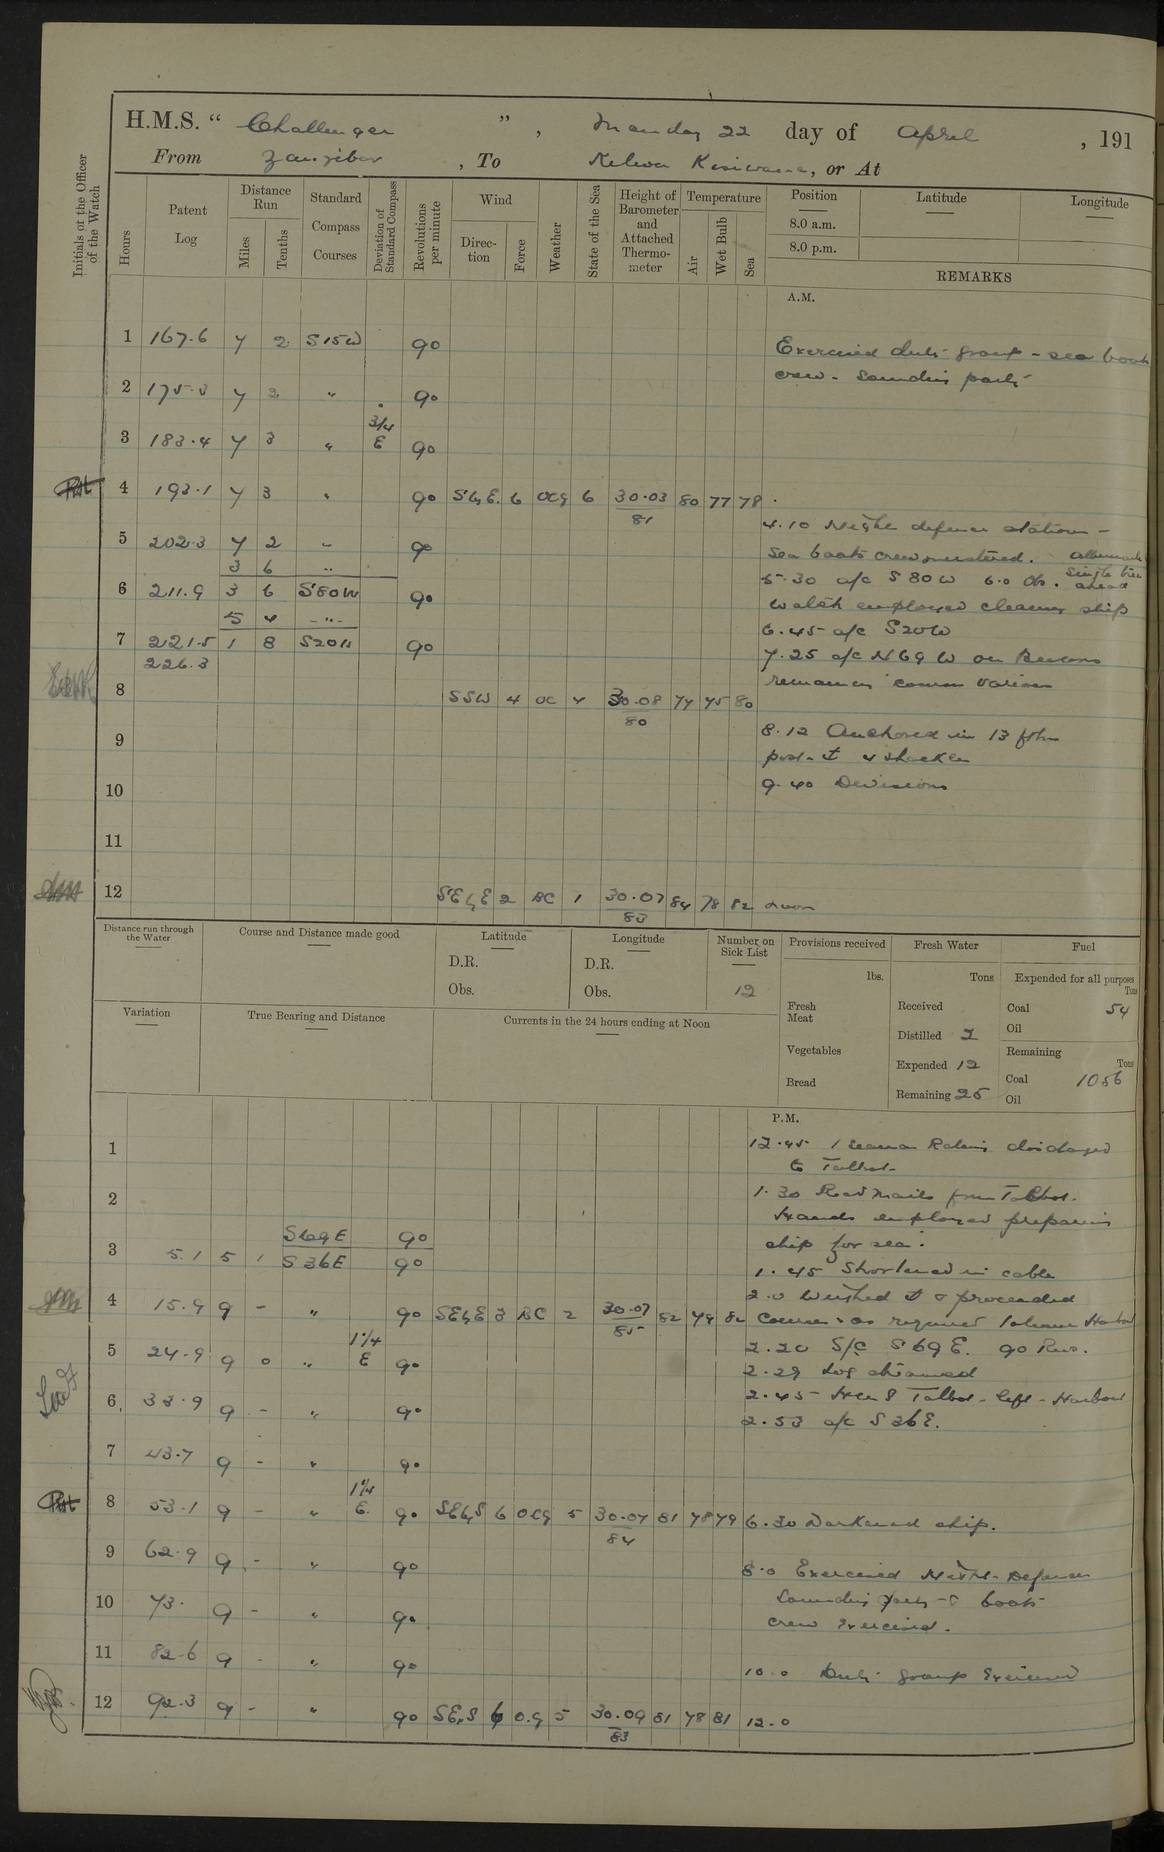 H.M.S. “ Challenger ” , Monday 22 day of April , 191
From Zanzibar , To Kilwa Kisiwani, or At
Initials of the Officer of the Watch
Hours
Patent Log
Distance Run
Miles
Tenths
Standard Compass Courses
Deviation of Standard Compass
Revolutions per minute
Wind
Direction
Force
Weather
State of the Sea
Height of Barometer and Attached Thermometer
Temperature
Air
Wet Bulb
Sea
Position
8.0 a.m.
8.0 p.m.
Latitude
Longitude
REMARKS
A.M.
1 167.6 7 2 S15W 90
Exercised duty group - sea boats
crew - Sounding party
2 175.3 7 2 " 90
3/4
3 183.4 7 3 " E 90
4 193.1 7 3 " 90 SbyE. 6 OCG 6 30.03 80 77 78
81
4.10 Night defence stations -
5 202.3 7 2 " 90
Sea boats crew mustered.
3 6 "
5.30 a/c S80W 6.0 Ob. Single line ahead
6 211.9 3 6 S80W 90
Watch employed cleaning ship
5 4 "
6.45 a/c S20W
7 221.5 1 8 S20W 90
7.25 a/c N69W on Beacons
226.3
remaining courses various
8 SSW 4 OC 4 30.08 77 75 80
80
9
8.12 Anchored in 13 fthms
port 4 shackles
10
9.40 Divisions
11
12 SEbyE 2 BC 1 30.07 84 78 82 Noon
83
Distance run through the Water
Course and Distance made good
Latitude
D.R.
Obs.
Longitude
D.R.
Obs.
Number on Sick List
12
Provisions received
lbs.
Fresh Meat
Vegetables
Bread
Fresh Water
Tons
Received
Distilled 2
Expended 12
Remaining 25
Fuel
Expended for all purposes
Tons
Coal 54
Oil
Remaining
Tons
Coal 1056
Oil
Variation
True Bearing and Distance
Currents in the 24 hours ending at Noon
P.M.
1
12.45 1 Seaman Rating discharged
to Talbot
2
1.30 Recd Mails from Talbot.
Hands employed preparing
S69E 90
ship for sea.
3 5.1 5 1 S36E 90
1.45 Shortened in cable
4 15.9 9 - " 90 SEbyE 3 BC 2 30.07 82 79 82
85
2.0 Weighed & proceeded
Courses as required to clear Harbour
1 1/4
5 24.9 9 0 " E 90
2.20 S/C S69E. 90 Revs.
2.29 Log streamed
6 33.9 9 - " 90
2.45 H.M.S Talbot - left - Harbour
2.53 a/c S36E.
7 43.7 9 - " 90
1 1/4
8 53.1 9 - " E. 90 SEbyS 6 OCG 5 30.07 81 78 79
84
6.30 Darkened ship.
9 62.9 9 - " 90
8.0 Exercised Night Defence
10 73. 9 - " 90
Sounding party & boats
crew Exercised.
11 82.6 9 - " 90
10.0 Duty group Exercised
12 92.3 9 - " 90 SEbyS 6 O.G 5 30.09 81 78 81 12.0
83